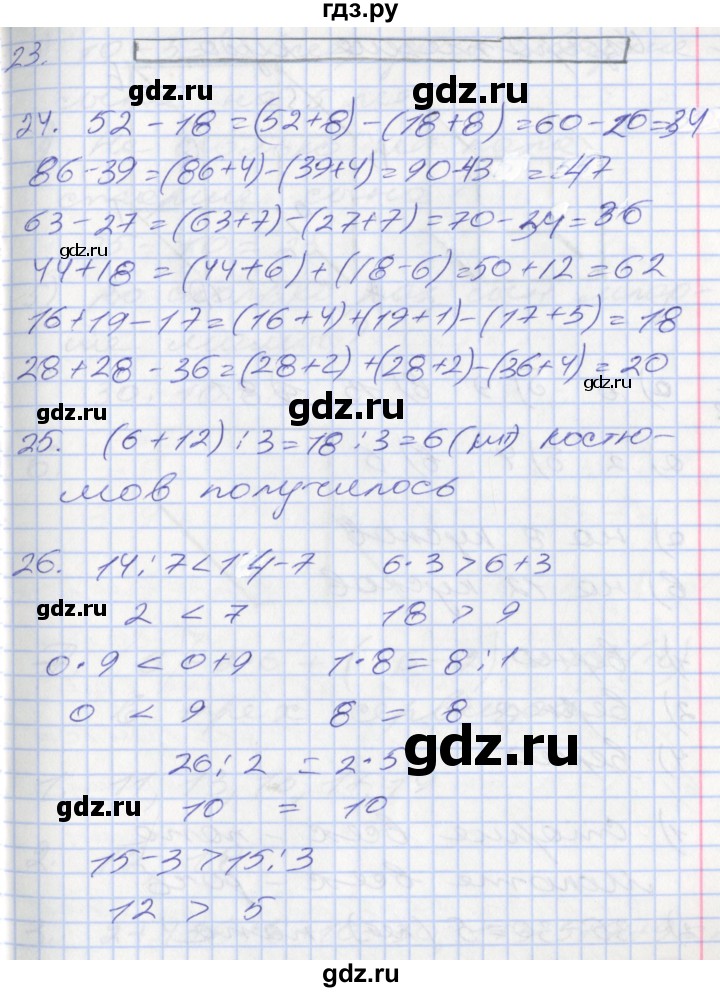 гдз.ру
23.
gdz.ru gdz.ru
24. 52 - 18 = (52+8) - (18+8) = 60 - 26 = 34
86 - 39 = (86+4) - (39+4) = 90-43 = 47
63 - 27 = (63+7) - (27+7) = 70 - 34 = 36
gdz.ru
44+18 = (44+6) + (18-6) = 50+12 = 62
16+19-17 = (16+4)+(19+1)-(17+5) = 18
28+28-36 = (28+2)+(28+2)-(36+4) = 20
gdz.ru gdz.ru
25. (6+12) : 3 = 18 : 3 = 6 (шт) костю-
мов получилось
26. 14 : 7 < 14-7 6 · 3 > 6+3
gdz.ru
2 < 7 18 > 9
0 · 9 < 0+9 1 · 8 = 8 : 1
0 < 9 8 = 8
gdz.ru
26 : 2 = 2 · 5
gdz.ru
10 = 10
15-3 > 15 : 3
12 > 5
gdz.ru